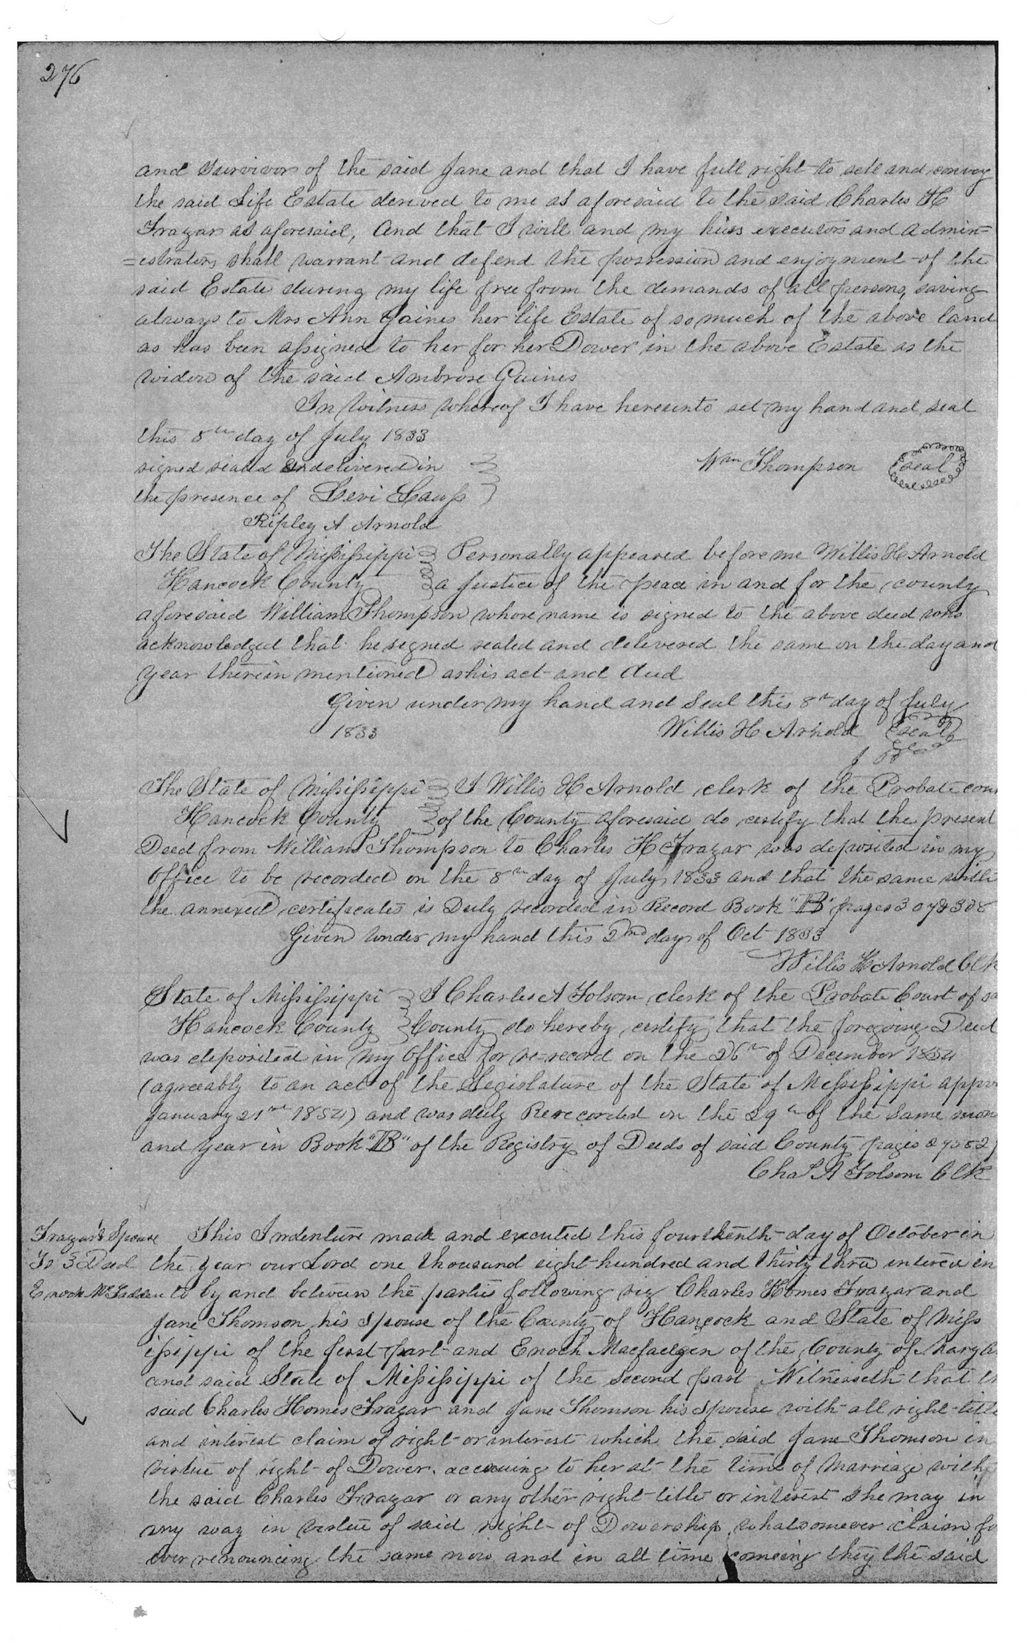 276
and survivor of the said Jane and that I have full right to sell and convey
the said Life Estate derived to me as aforesaid to the said Charles H
Frazar as aforesaid, And that I will and my heirs executors and admin=
=istrators shall warrant and defend the possession and enjoyment of the
said Estate during my life free from the demands of all persons, saving
always to Mrs Ann Gaines her life Estate of so much of the above land
as has been assigned to her for her Dower in the above Estate as the
widow of the said Ambrose Gaines
In witness whereof I have hereunto set my hand and seal
this 8th day of July 1833
signed sealed & delivered in Wm Thompson seal
the presence of Levi
Ripley A Arnold
The State of Mississippi Personally appeared before me Willis H Arnold
Hancock County a Justice of the peace in and for the county
aforesaid William Thompson whose name is signed to the above deed who
acknowledged that he signed sealed and delivered the same on the day and
year therein mentioned as his act and deed
Given under my hand and seal this 8th day of July
1833 Willis H Arnold seal
The State of Mississippi I Willis H Arnold clerk of the Probate cou
Hancock County of the County aforesaid do certify that the present
Deed from William Thompson to Charles H Frazar was deposited in my
office to be recorded on the 8th day of July 1833 and that the same with
the annexed certificates is Duly recorded in Record Book "B" pages
Given under my hand this 2nd day of Oct 1833
Willis H Arnold Clk
State of Mississippi I Charles A Folsom clerk of the Probate Court of sa
Hancock County County do hereby certify that the foregoing Deed
was deposited in my office for re-record on the 26th of December 1854
(agreeably to an act of the Legislature of the State of Mississippi appro
January 21st 1854) and was duly Rerecorded on the 29th of the same mon
and year in Book "B" of the Registry of Deeds of said County pages
Chas A Folsom Clk
Frazar & Spouse This Indenture made and executed this fourteenth day of October in
To Deed the year our Lord one thousand eight hundred and thirty three entered in
Enoch McFadden to by and between the parties following viz Charles Homes Frazar and
Jane Thomson his spouse of the County of Hancock and State of Miss
issippi of the first part and Enoch of the County of
and said State of Mississippi of the second part Witnesseth that th
said Charles Homes Frazar and Jane Thomson his spouse with all right title
and interest claim of right or interest which the said Jane Thomson in
virtue of right of Dower accruing to her at the time of marriage with
the said Charles Frazar or any other right title or interest she may in
any way in virtue of said right of Dowership whatsomever claim fo
ever renouncing the same now and in all time comeing they the said